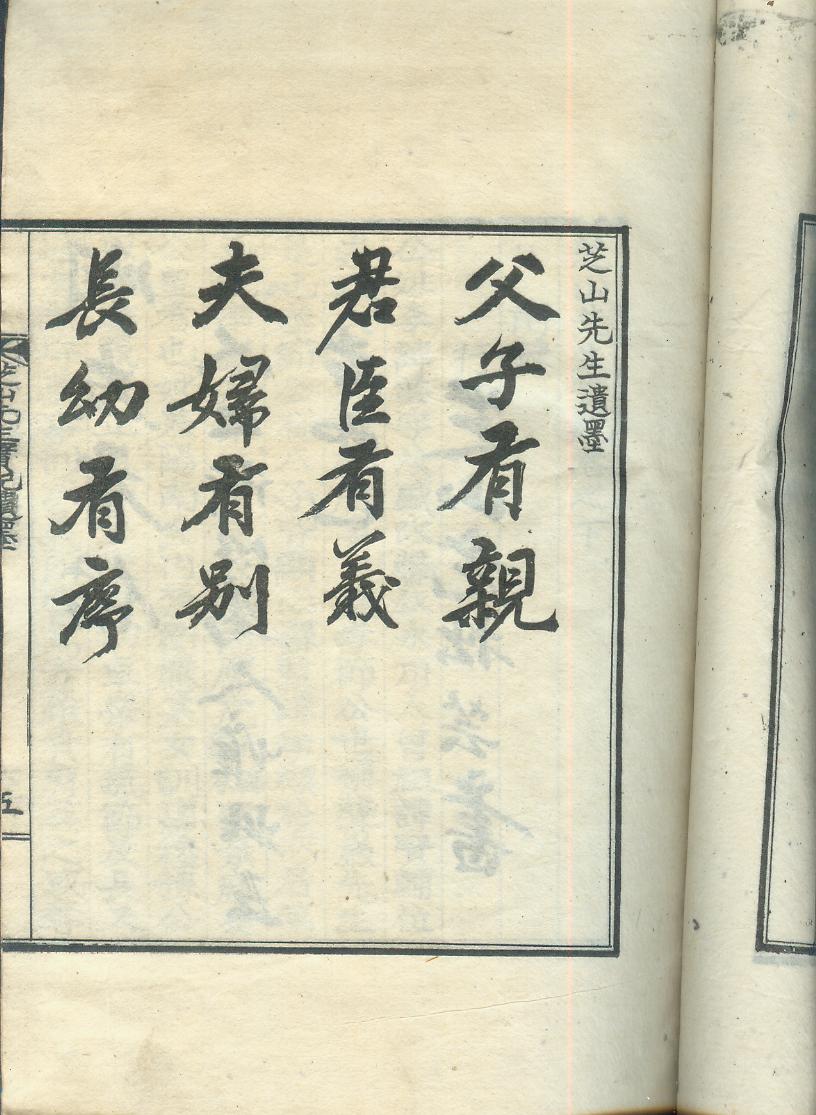 芝山先生遺墨
父子有親
君臣有義
夫婦有別
長幼有序
五